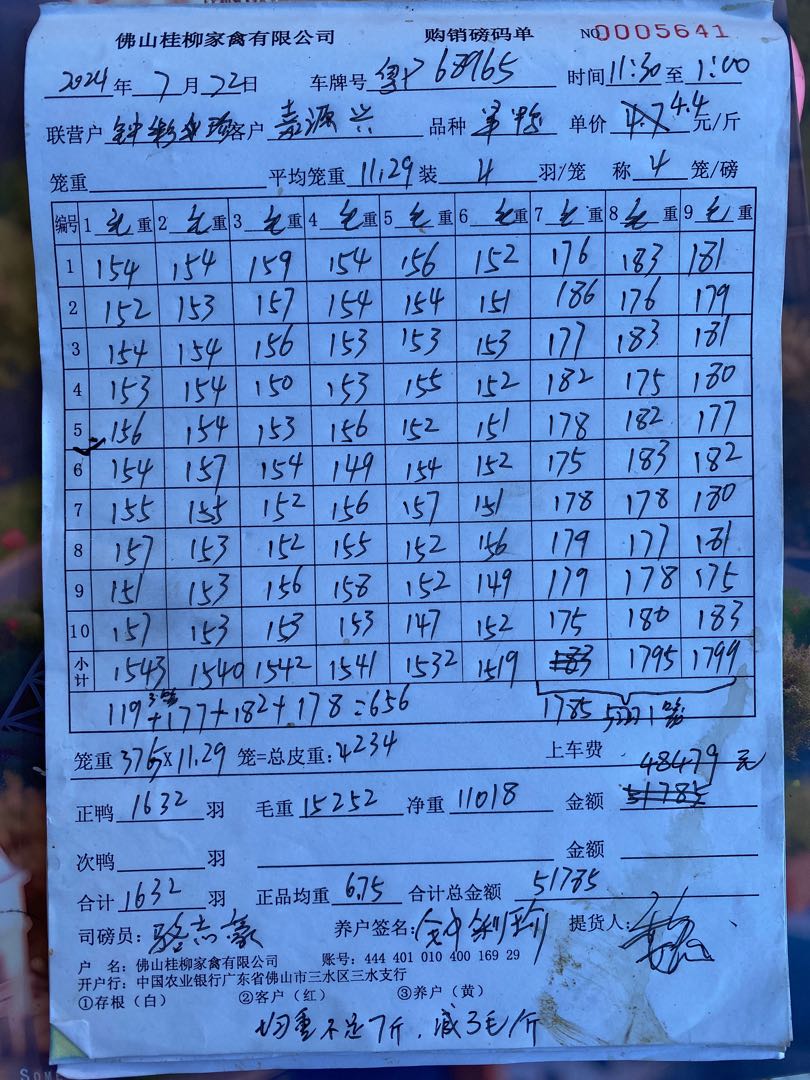 佛山桂柳家禽有限公司 购销磅码单 NO 0005641
2024年7月22日 车牌号 68965 时间11:30至1:00
联营户 客户 嘉源兴 品种 单价 4.7 4.4 元/斤
笼重 平均笼重 11.29 装 4 羽/笼 称 4 笼/磅
编号 1 毛 重 2 毛 重 3 毛 重 4 毛 重 5 毛 重 6 毛 重 7 毛 重 8 毛 重 9 毛 重
1 154 154 159 154 156 152 176 183 181
2 152 153 157 154 154 151 186 176 179
3 154 154 156 153 153 153 177 183 181
4 153 154 150 153 155 152 182 175 180
5 156 154 153 156 152 151 178 182 177
6 154 157 154 149 154 152 175 183 182
7 155 155 152 156 157 151 178 178 180
8 157 153 152 155 152 156 179 177 181
9 151 153 156 158 152 149 179 178 175
10 157 153 153 153 147 152 175 180 183
小计 1543 1540 1542 1541 1532 1519 183 1795 1799
119+177+182+178=656 1785
笼重 375×11.29 笼=总皮重:4234 上车费
48479元
正鸭 1632 羽 毛重 15252 净重 11018 金额 51785
次鸭 羽 金额
合计 1632 羽 正品均重 6.75 合计总金额 51785
司磅员: 骆志豪 养户签名: 提货人:
户 名: 佛山桂柳家禽有限公司 账号: 444 401 010 400 169 29
开户行: 中国农业银行广东省佛山市三水区三水支行
①存根(白) ②客户(红) ③养户(黄)
均重不足7斤,减3毛/斤
SOME